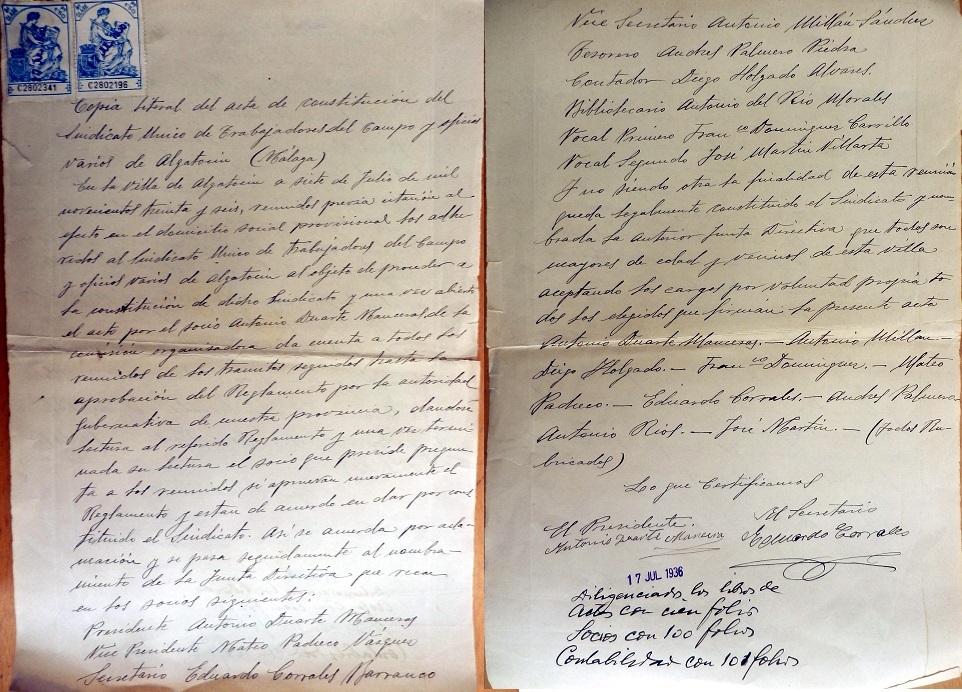 C2802341 C2802196
Copia literal del acta de constitución del
Sindicato Unico de Trabajadores del Campo y oficios
varios de Algatocin (Málaga)
En la villa de Algatocin a siete de Julio de mil
novecientos treinta y seis, reunidos previa citación al
efecto en el domicilio social provisional los adhe
ridos al Sindicato Unico de Trabajadores del Campo
y oficios varios de Algatocin al objeto de proceder a
la constitución de dicho Sindicato y una vez abierto
el acto por el socio Antonio Duarte Manceras de la
comisión organisadora da cuenta a todos los
reunidos de los tramites seguidos hasta la
aprobación del Reglamento por la autoridad
gubernativa de nuestra provincia, dandose
lectura al referido Reglamento y una vez termi
nada su lectura el socio que preside pregun
ta a los reunidos si aprueban nuevamente el
Reglamento y estan de acuerdo en dar por cons
tituido el Sindicato. Asi se acuerda por acla-
mación y se pasa seguidamente al nombra-
miento de la Junta Directiva que recae
en los socios siguientes:
Presidente Antonio Duarte Manceras
Vice Presidente Mateo Pacheco Vázquez
Secretario Eduardo Corrales Barranco
Vice Secretario Antonio Millán Sánchez
Tesorero Andres Palmero Piedra
Contador Diego Holgado Alvares.
Bibliotecario Antonio del Rio Morales
Vocal Primero Fran co Dominguez Carrillo
Vocal Segundo José Martin Villarta
Y no siendo otra la finalidad de esta reunión
queda legalmente constituido el Sindicato y nom
brada la anterior Junta Directiva que todos son
mayores de edad y vecinos de esta villa
aceptando los cargos por voluntad propia to
dos los elegidos que firman la presente acta
Antonio Duarte Manceras.— Antonio Millan—
Diego Holgado.— Fran co Dominguez.— Mateo
Pacheco.— Eduardo Corrales.— Andres Palmero—
Antonio Rios.— José Martin.— (Todos Ru-
bricados)
Lo que Certificamos
El Presidente. El Secretario
Antonio Duarte Mancera Eduardo Corrales
17 JUL 1936
Diligenciados los libros de
Actas con cien folios
Socios con 100 folios
Contabilidad con 101 folios